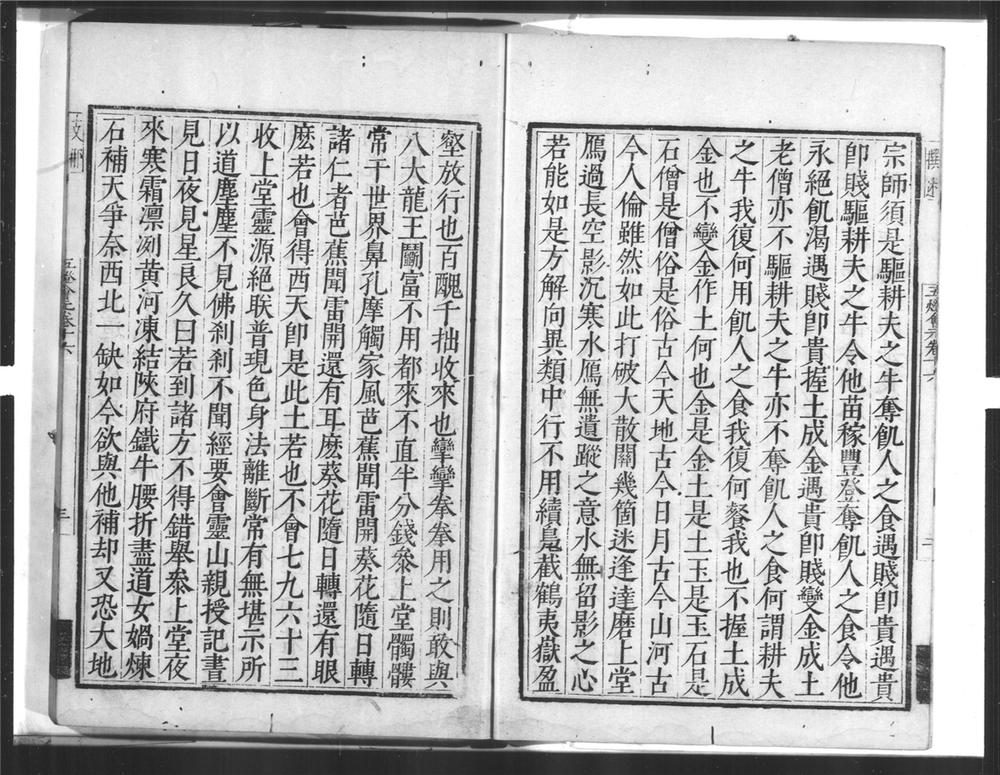 宗師須是驅耕夫之牛奪飢人之食遇賤即貴遇貴
即賤驅耕夫之牛令他苗稼豐登奪飢人之食令他
永絕飢渴遇賤即貴握土成金遇貴即賤變金成土
老僧亦不驅耕夫之牛亦不奪飢人之食何謂耕夫
之牛我復何用飢人之食我復何餐我也不握土成
金也不變金作土何也金是金土是土玉是玉石是
石僧是僧俗是俗古今天地古今日月古今山河古
今人倫雖然如此打破大散關幾箇迷逢達磨上堂
鴈過長空影沉寒水鴈無遺蹤之意水無留影之心
若能如是方解向異類中行不用續鳧截鶴夷嶽盈
壑放行也百醜千拙收來也攣攣拳拳用之則敢與
八大龍王鬭富不用都來不直半分錢叅上堂髑髏
常干世界鼻孔摩觸家風芭蕉聞雷開葵花隨日轉
諸仁者芭蕉聞雷開還有耳麽葵花隨日轉還有眼
麽若也會得西天即是此土若也不會七九六十三
收上堂靈源絕朕普現色身法離斷常有無堪示所
以道塵塵不見佛刹刹不聞經要會靈山親授記晝
見日夜見星良久曰若到諸方不得錯舉叅上堂夜
來寒霜凛冽黃河凍結陝府鐵牛腰折盡道女媧煉
石補天爭奈西北一缺如今欲與他補却又恐大地
五燈會元卷十六
三